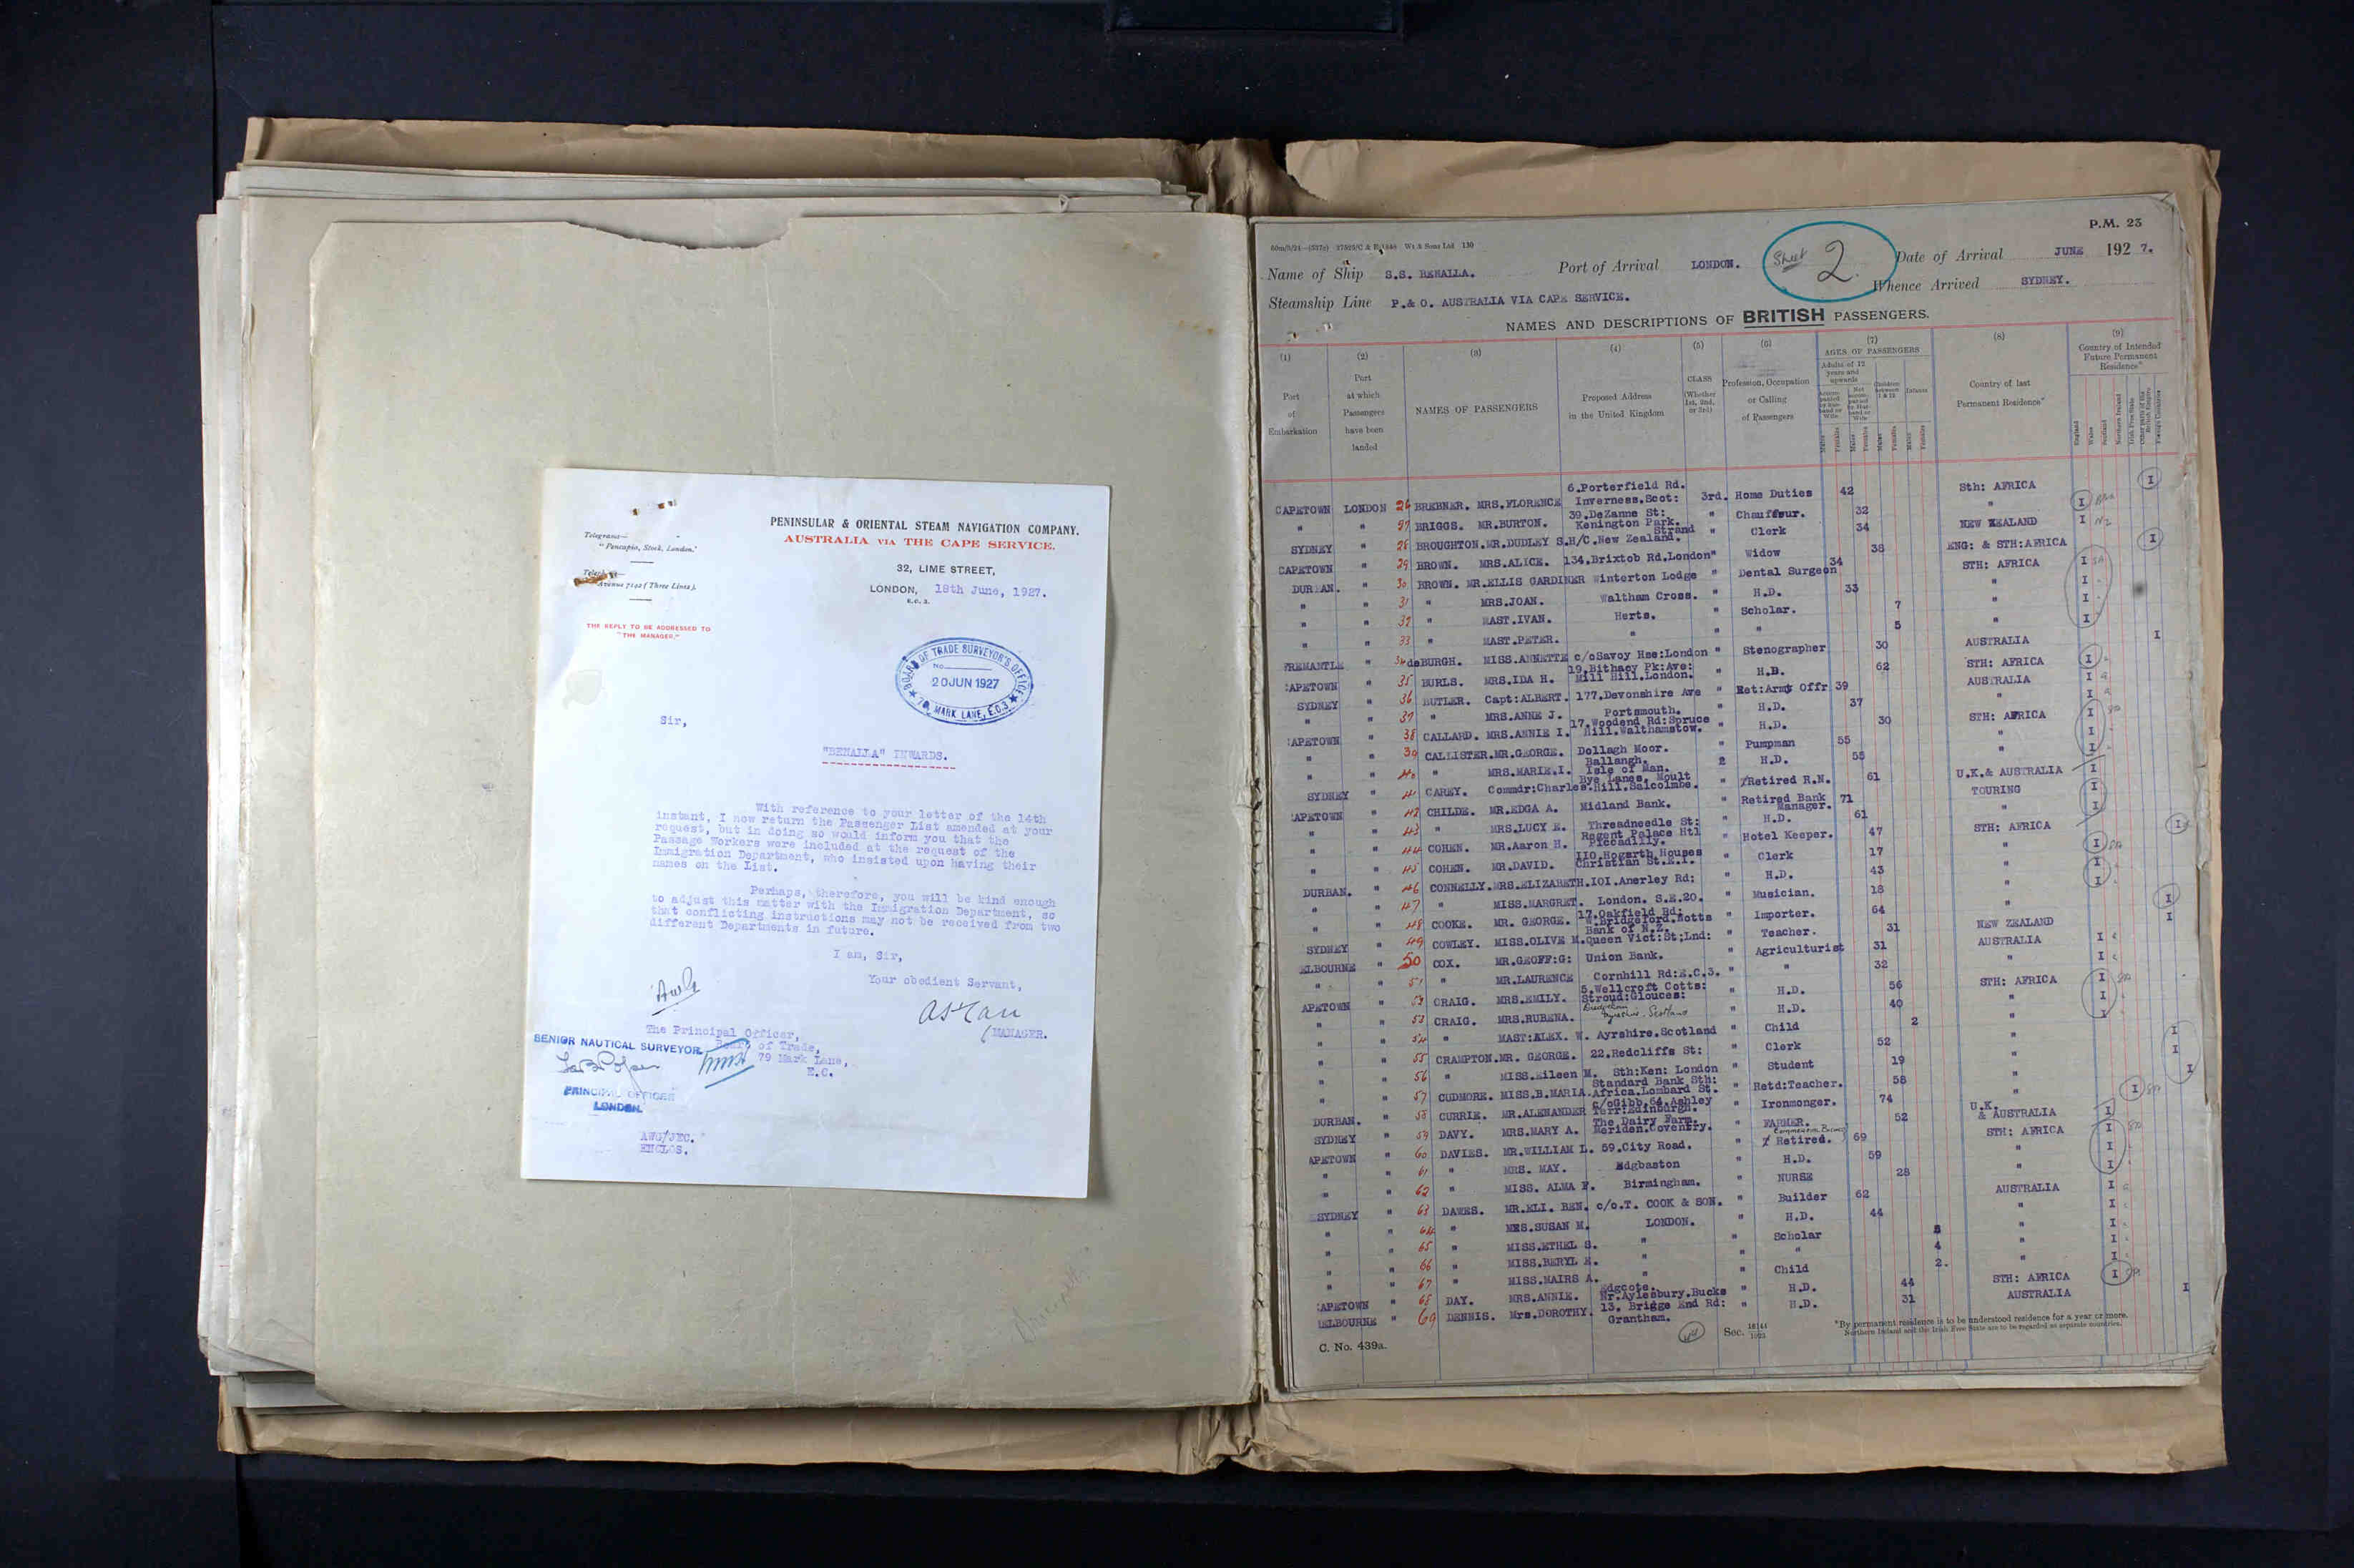 PENINSULAR & ORIENTAL STEAM NAVIGATION COMPANY.
AUSTRALIA VIA THE CAPE SERVICE.
Telegrams—
"Pencapio, Stock, London."
32, LIME STREET,
LONDON, 18th June, 1927.
E.C. 3.
(Three Lines).
THE REPLY TO BE ADDRESSED TO
"THE MANAGER."
BOARD OF TRADE SURVEYOR'S OFFICE
No.
20 JUN 1927
79, MARK LANE, E.C.3
Sir,
"BENALLA" INWARDS.
With reference to your letter of the 14th
instant, I now return the Passenger List amended at your
request, but in doing so would inform you that the
Passage Workers were included at the request of the
Immigration Department, who insisted upon having their
names on the List.
Perhaps, therefore, you will be kind enough
to adjust this matter with the Immigration Department, so
that conflicting instructions may not be received from two
different Departments in future.
I am, Sir,
Your obedient Servant,
MANAGER.
The Principal Officer,
Board of Trade,
79 Mark Lane,
E.C.
SENIOR NAUTICAL SURVEYOR
PRINCIPAL OFFICER
LONDON.
AWG/JEC.
ENCLOS.
P.M. 23
Sheet 2.
Name of Ship S.S. BENALLA. Port of Arrival LONDON. Date of Arrival JUNE 1927.
Steamship Line P.& O. AUSTRALIA VIA CAPE SERVICE. Whence Arrived SYDNEY.
NAMES AND DESCRIPTIONS OF BRITISH PASSENGERS.
(1) (2) (3) (4) (5) (6) (7) (8) (9)
Port of Embarkation
Port at which Passengers have been landed
NAMES OF PASSENGERS
Proposed Address in the United Kingdom
CLASS (Whether 1st, 2nd, or 3rd)
Profession, Occupation or Calling of Passengers
AGES OF PASSENGERS
Adults of 12 years and upwards
Children between 1 & 12
Infants
Country of last Permanent Residence*
Country of Intended Future Permanent Residence*
England
Wales
Scotland
Northern Ireland
Irish Free State
Other parts of the British Empire
Foreign Countries
CAPETOWN LONDON 26 BREBNER. MRS.FLORENCE 6.Porterfield Rd. Inverness.Scot: 3rd. Home Duties 42 Sth: AFRICA I
" " 27 BRIGGS. MR.BURTON. 39.DeZanne St: Kenington Park. " Chauffeur. 32 " I
SYDNEY " 28 BROUGHTON.MR.DUDLEY S.H/C.New Zealand. Strand " Clerk 34 NEW ZEALAND I NZ
CAPETOWN " 29 BROWN. MRS.ALICE. 134.Brixtob Rd.London " Widow 38 ENG: & STH:AFRICA I
DURBAN. " 30 BROWN. MR.ELLIS GARDINER Winterton Lodge " Dental Surgeon 34 STH: AFRICA I SA
" " 31 " MRS.JOAN. Waltham Cross. " H.D. 33 " I
" " 32 " MAST.IVAN. Herts. " Scholar. 7 " I
" " 33 " MAST.PETER. " " " 5 " I
FREMANTLE " 34 deBURGH. MISS.ANNETTE c/oSavoy Hse:London " Stenographer 30 AUSTRALIA I
CAPETOWN " 35 BURLS. MRS.IDA H. 19.Bithacy Pk:Ave: Mill Hill.London. " H.D. 62 STH: AFRICA I
SYDNEY " 36 BUTLER. Capt:ALBERT. 177.Devonshire Ave " Ret:Army Offr 39 AUSTRALIA I
" " 37 " MRS.ANNE J. Portsmouth. " H.D. 37 " I
CAPETOWN " 38 CALLARD. MRS.ANNIE I. 17.Woodend Rd:Spruce Hill.Walthamstow. " H.D. 30 STH: AFRICA I
" " 39 CALLISTER.MR.GEORGE. Dollagh Moor. " Pumpman 55 " I
" " 40 " MRS.MARIE.I. Ballaugh. Isle of Man. 2 H.D. 55 " I
SYDNEY " 41 CAREY. Commdr:Charles. Bye Lanes. Moult Hill.Salcolmbe. " Retired R.N. 61 U.K.& AUSTRALIA I
CAPETOWN " 42 CHILDE. MR.EDGA A. Midland Bank. " Retired Bank Manager. 71 TOURING I
" " 43 " MRS.LUCY E. Threadneedle St: " H.D. 61 " I
" " 44 COHEN. MR.Aaron H. Regent Palace Htl Piccadilly. " Hotel Keeper. 47 STH: AFRICA I
" " 45 COHEN. MR.DAVID. 110.Hogarth Houses Christian St.E.1. " Clerk 17 " I
DURBAN. " 46 CONNELLY.MRS.ELIZABETH.101.Anerley Rd: " H.D. 43 " I
" " 47 " MISS.MARGRET. London. S.E.20. " Musician. 18 " I
" " 48 COOKE. MR. GEORGE. 17.Oakfield Rd: W.Bridgeford.Notts " Importer. 64 " I
SYDNEY " 49 COWLEY. MISS.OLIVE M. Bank of N.Z. Queen Vict:St;Lnd: " Teacher. 31 NEW ZEALAND I
MELBOURNE " 50 COX. MR.GEOFF:G: Union Bank. " Agriculturist 31 AUSTRALIA I
" " 51 " MR.LAURENCE Cornhill Rd:E.C.3. " " 32 " I
CAPETOWN " 52 CRAIG. MRS.EMILY. 5.Wellcroft Cotts: Stroud:Glouces: " H.D. 56 STH: AFRICA I
" " 53 CRAIG. MRS.RUBENA. Ayrshire. Scotland " H.D. 40 " I
" " 54 " MAST:ALEX. W. Ayrshire.Scotland " Child 2 " I
" " 55 CRAMPTON.MR. GEORGE. 22.Redcliffe St: " Clerk 52 " I
" " 56 " MISS.Eileen M. Sth:Ken: London " Student 19 " I
" " 57 CUDMORE. MISS.B.MARIA. Standard Bank Sth: Africa.Lombard St. " Retd:Teacher. 58 " I
DURBAN. " 58 CURRIE. MR.ALEXANDER c/oGibb.64.Ashley Terr:Edinburgh. " Ironmonger. 74 " I
SYDNEY " 59 DAVY. MRS.MARY A. The Dairy Farm. Meriden.Coventry. " FARMER. 52 U.K. & AUSTRALIA I
CAPETOWN " 60 DAVIES. MR.WILLIAM L. 59.City Road. " Retired. 69 STH: AFRICA I
" " 61 " MRS. MAY. Edgbaston " H.D. 59 " I
" " 62 " MISS. ALMA F. Birmingham. " NURSE 28 " I
SYDNEY " 63 DAWES. MR.ELI. BEN. c/o.T. COOK & SON. " Builder 62 AUSTRALIA I
" " 64 " MRS.SUSAN M. LONDON. " H.D. 44 " I
" " 65 " MISS.ETHEL S. " " Scholar 5 " I
" " 66 " MISS.BERYL E. " " " 4 " I
" " 67 " MISS.MAIRS A. " " Child 2. " I
CAPETOWN " 68 DAY. MRS.ANNIE. Edgcote. Nr.Aylesbury.Bucks " H.D. 44 STH: AFRICA I
MELBOURNE " 69 DENNIS. Mrs.DOROTHY. 13. Brigge End Rd: Grantham. " H.D. 31 AUSTRALIA I
C. No. 439a.
Sec.
*By permanent residence is to be understood residence for a year or more.
Northern Ireland and the Irish Free State are to be regarded as separate countries.